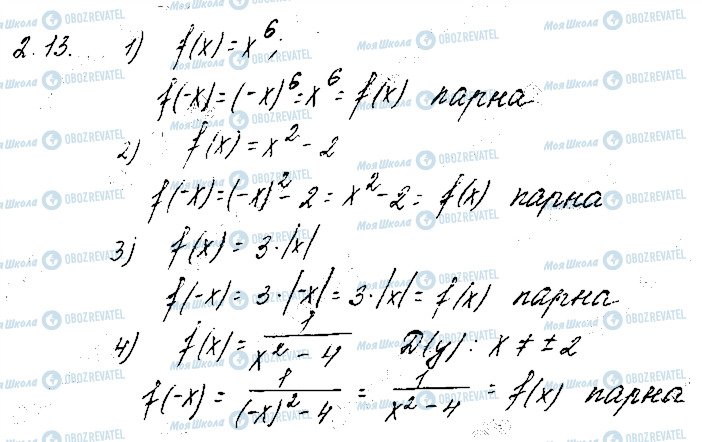 2.13. 1) f(x) = x^6;
f(-x) = (-x)^6 = x^6 = f(x) парна
2) f(x) = x^2 - 2
f(-x) = (-x)^2 - 2 = x^2 - 2 = f(x) парна
3) f(x) = 3·|x|
f(-x) = 3·|-x| = 3·|x| = f(x) парна
4) f(x) = 1/(x^2 - 4) D(y): x ≠ ±2
f(-x) = 1/((-x)^2 - 4) = 1/(x^2 - 4) = f(x) парна
Моя Школа OBOZREVATEL